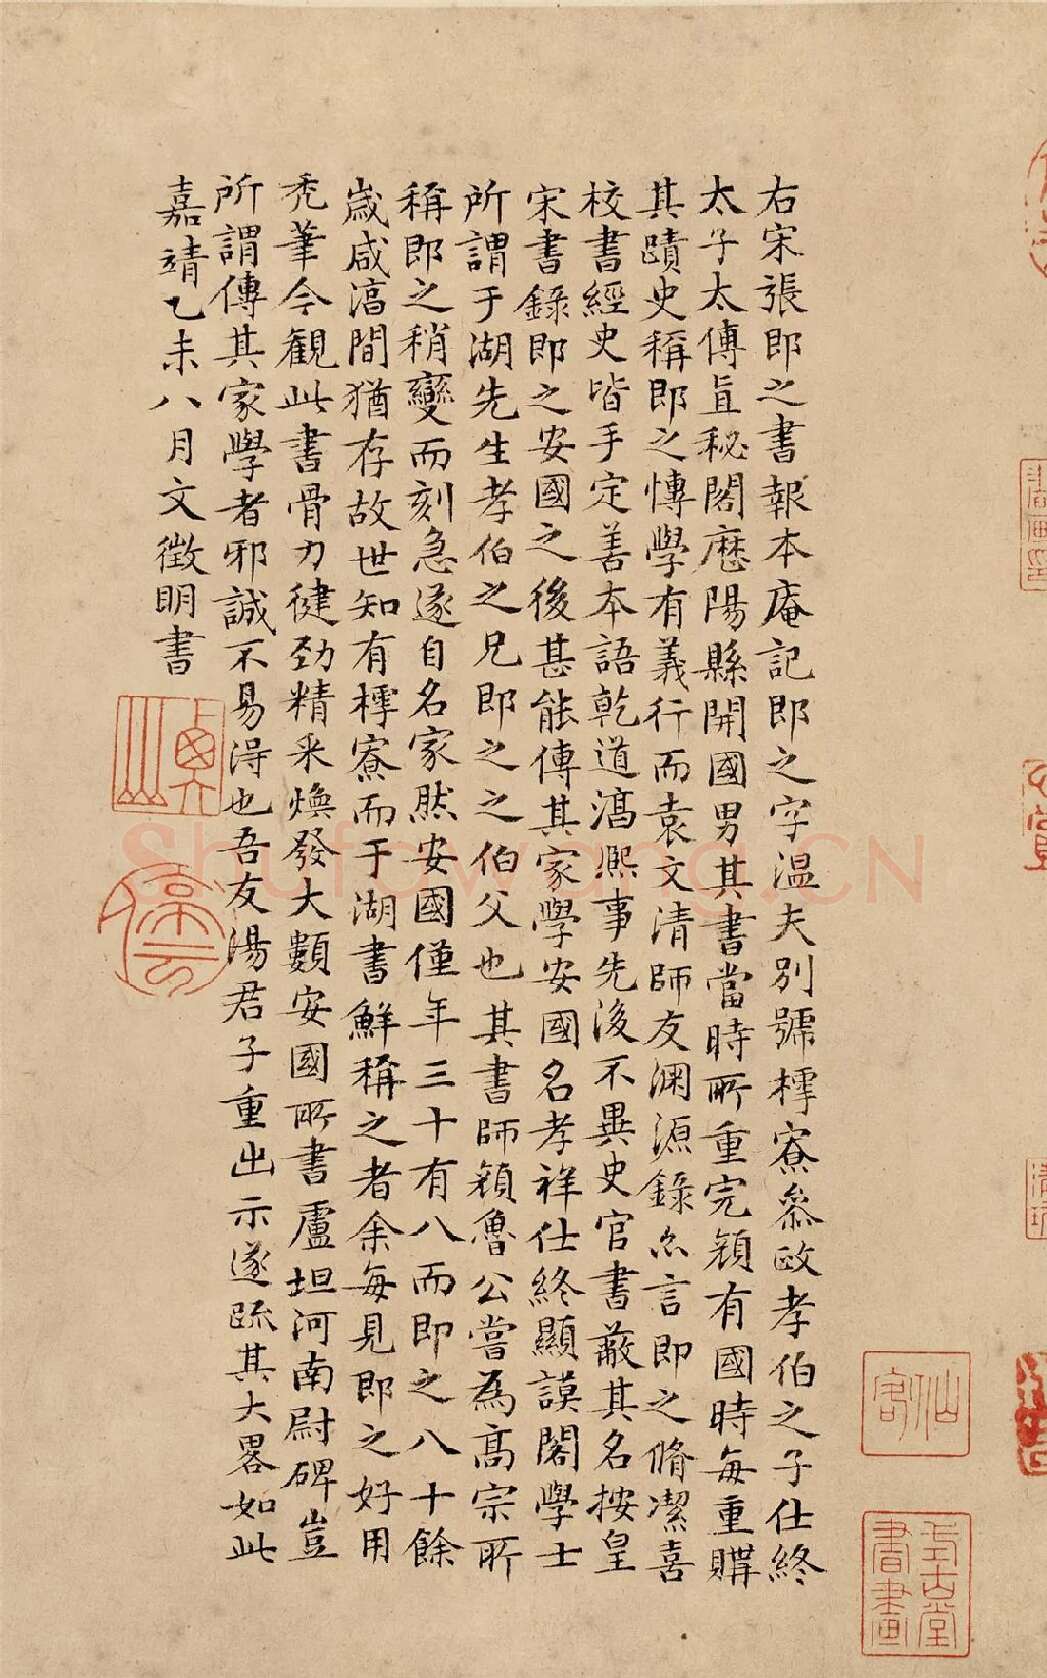 右宋張即之書報本庵記即之字温夫別號樗寮叅政孝伯之子仕終
太子太傅直秘閣歷陽縣開國男其書當時所重完顏有國時每重購
其蹟史稱即之博學有義行而袁文清師友淵源錄亦言即之脩潔喜
校書經史皆手定善本語乾道淳熙事先後不異史官書蔽其名按皇
宋書錄即之安國之後甚能傳其家學安國名孝祥仕終顯謨閣學士
所謂于湖先生孝伯之兄即之之伯父也其書師顏魯公嘗為高宗所
稱即之稍變而刻急遂自名家然安國僅年三十有八而即之八十餘
歲咸淳間猶存故世知有樗寮而于湖書鮮稱之者余每見即之好用
禿筆今觀此書骨力健勁精采煥發大類安國所書盧坦河南尉碑豈
所謂傳其家學者邪誠不易得也吾友湯君子重出示遂跋其大畧如此
嘉靖乙未八月文徵明書
停雲
仙客
書畫
Shufawang.CN